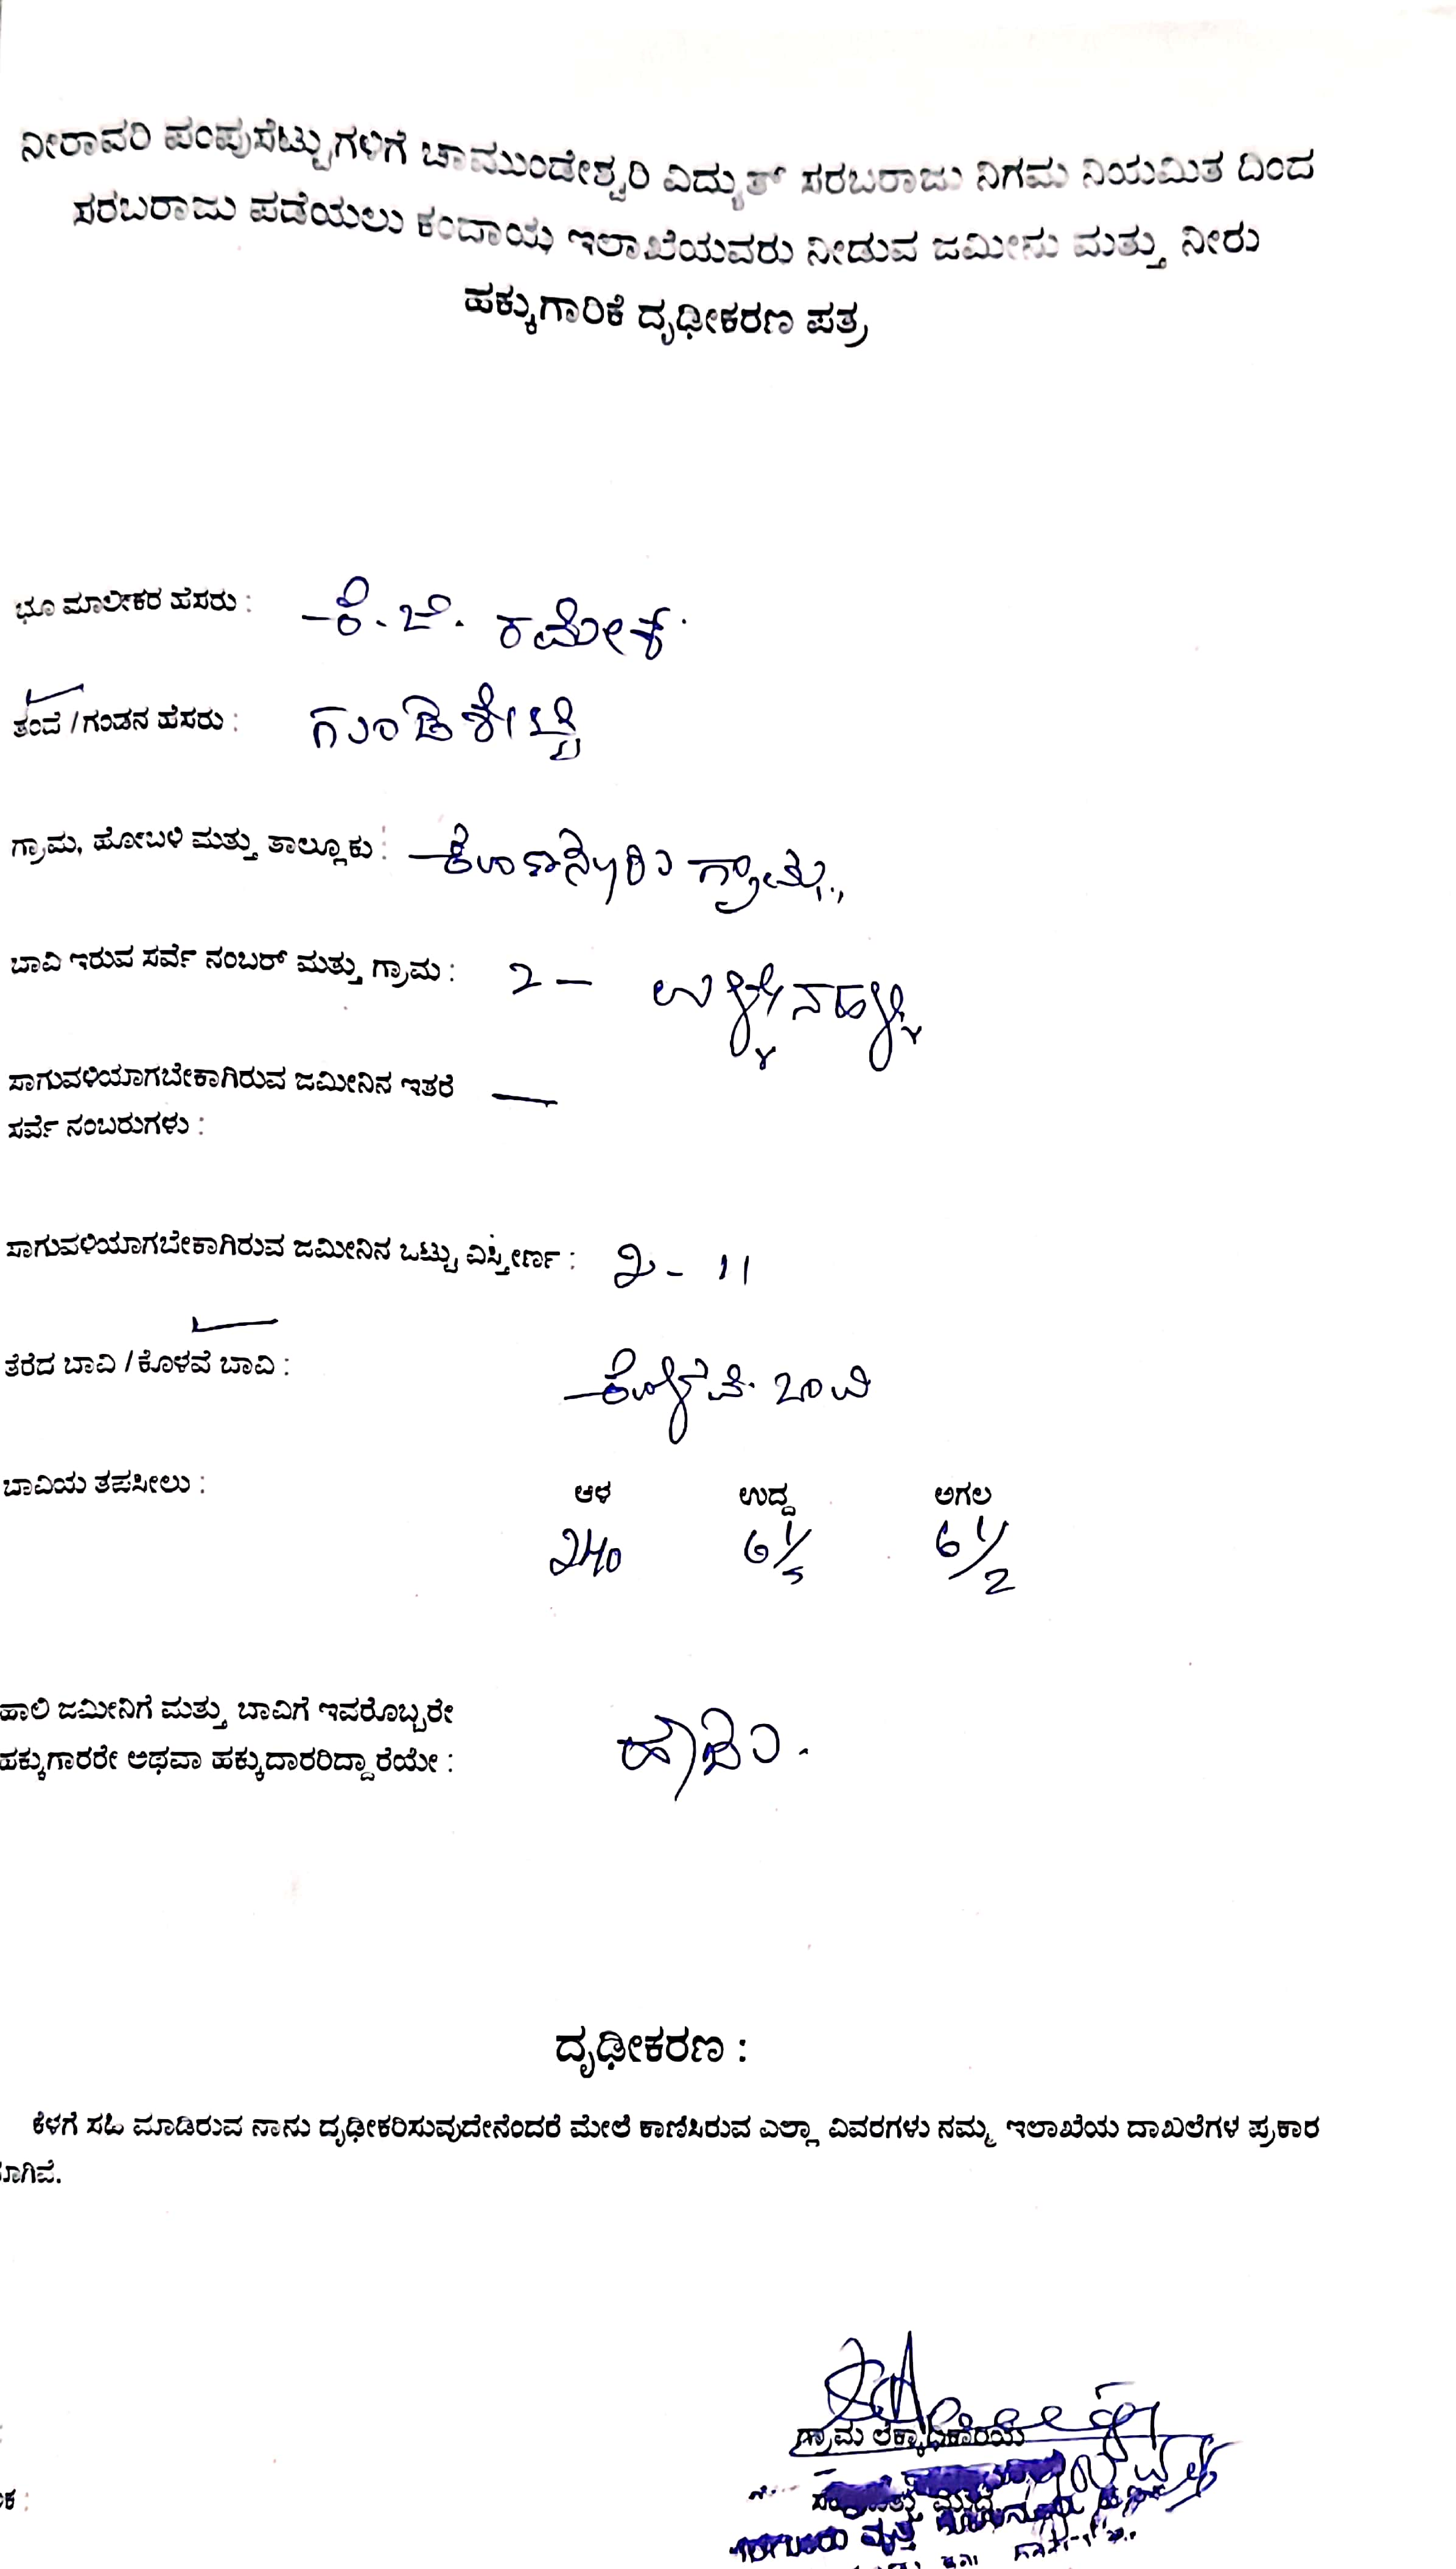 ನೀರಾವರಿ ಪಂಪುಸೆಟ್ಟುಗಳಿಗೆ ಚಾಮುಂಡೇಶ್ವರಿ ವಿದ್ಯುತ್ ಸರಬರಾಜು ನಿಗಮ ನಿಯಮಿತ ದಿಂದ
ಸರಬರಾಜು ಪಡೆಯಲು ಕಂದಾಯ ಇಲಾಖೆಯವರು ನೀಡುವ ಜಮೀನು ಮತ್ತು ನೀರು
ಹಕ್ಕುಗಾರಿಕೆ ದೃಢೀಕರಣ ಪತ್ರ
ಭೂ ಮಾಲೀಕರ ಹೆಸರು : ಕೆ. ಜೆ. ರಮೇಶ್
ತಂದೆ / ಗಂಡನ ಹೆಸರು : ಗುಂಡಶೇಟ್ಟಿ
ಗ್ರಾಮ, ಹೋಬಳಿ ಮತ್ತು ತಾಲ್ಲೂಕು : ಗ್ರಾಮ.,
ಬಾವಿ ಇರುವ ಸರ್ವೆ ನಂಬರ್ ಮತ್ತು ಗ್ರಾಮ : 2 –
ಸಾಗುವಳಿಯಾಗಬೇಕಾಗಿರುವ ಜಮೀನಿನ ಇತರೆ —
ಸರ್ವೆ ನಂಬರುಗಳು :
ಸಾಗುವಳಿಯಾಗಬೇಕಾಗಿರುವ ಜಮೀನಿನ ಒಟ್ಟು ವಿಸ್ತೀರ್ಣ : 2 - 11
ತೆರೆದ ಬಾವಿ / ಕೊಳವೆ ಬಾವಿ : ಕೊಳವೆ ಬಾವಿ
ಬಾವಿಯ ತಪಸೀಲು : ಆಳ ಉದ್ದ ಅಗಲ
240 6 1/2 6 1/2
ಹಾಲಿ ಜಮೀನಿಗೆ ಮತ್ತು ಬಾವಿಗೆ ಇವರೊಬ್ಬರೇ
ಹಕ್ಕುಗಾರರೇ ಅಥವಾ ಹಕ್ಕುದಾರರಿದ್ದಾರೆಯೇ : ಹೌದು.
ದೃಢೀಕರಣ :
ಕೆಳಗೆ ಸಹಿ ಮಾಡಿರುವ ನಾನು ದೃಢೀಕರಿಸುವುದೇನೆಂದರೆ ಮೇಲೆ ಕಾಣಿಸಿರುವ ಎಲ್ಲಾ ವಿವರಗಳು ನಮ್ಮ ಇಲಾಖೆಯ ದಾಖಲೆಗಳ ಪ್ರಕಾರ
ಗ್ರಾಮ ಲೆಕ್ಕಾಧಿಕಾರಿಯ